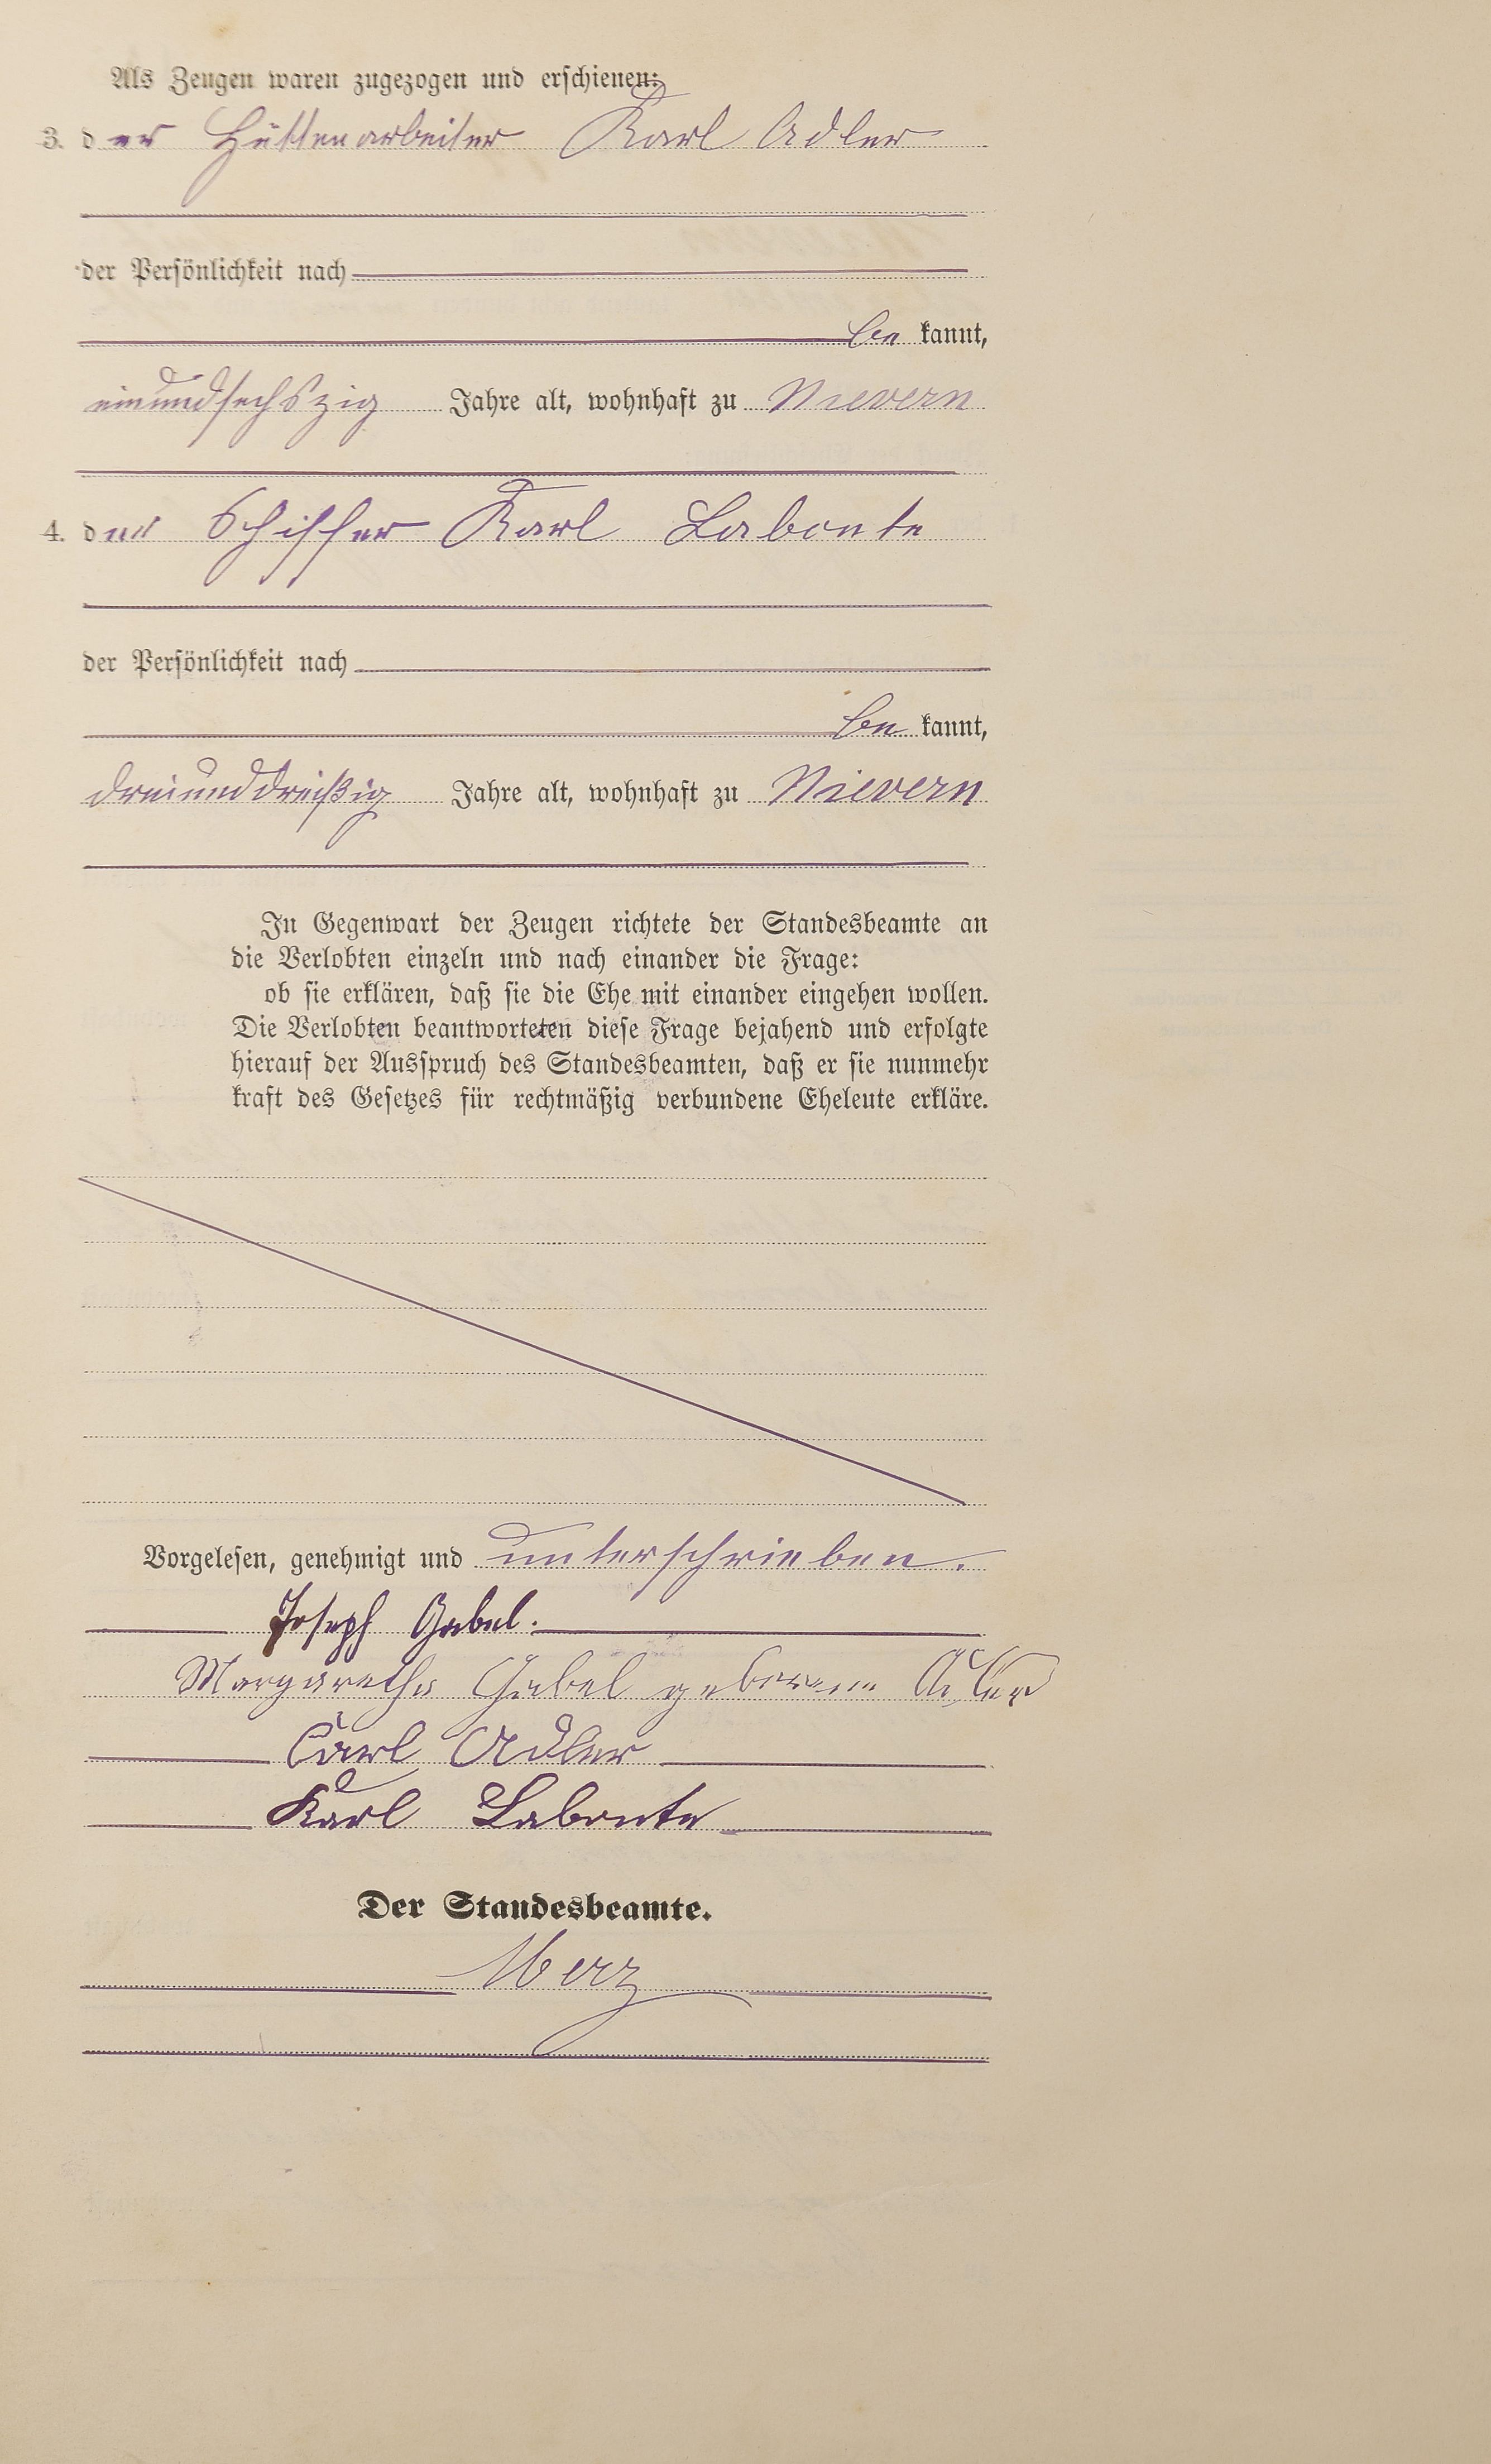 Als Zeugen waren zugezogen und erschienen:
3. der Hüttenarbeiter Karl Adler
der Persönlichkeit nach
be kannt,
einundsechszig Jahre alt, wohnhaft zu Nievern
4. der Schiffer Karl Labonte
der Persönlichkeit nach
be kannt,
dreiunddreißig Jahre alt, wohnhaft zu Nievern
In Gegenwart der Zeugen richtete der Standesbeamte an
die Verlobten einzeln und nach einander die Frage:
ob sie erklären, daß sie die Ehe mit einander eingehen wollen.
Die Verlobten beantworteten diese Frage bejahend und erfolgte
hierauf der Ausspruch des Standesbeamten, daß er sie nunmehr
kraft des Gesetzes für rechtmäßig verbundene Eheleute erkläre.
Vorgelesen, genehmigt und unterschrieben.
Joseph Gabel.
Margaretha Gabel geborene Adler
Carl Adler
Karl Labonte
Der Standesbeamte.
Merz